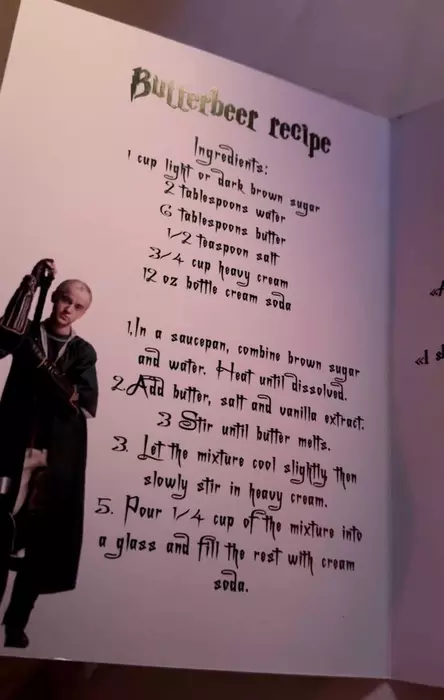 Butterbeer recipe
Ingredients:
1 cup light or dark brown sugar
2 tablespoons water
6 tablespoons butter
1/2 teaspoon salt
3/4 cup heavy cream
12 oz bottle cream soda
1.In a saucepan, combine brown sugar
and water. Heat until dissolved.
2.Add butter, salt and vanilla extract.
3 Stir until butter melts.
3. Let the mixture cool slightly then
slowly stir in heavy cream.
5. Pour 1/4 cup of the mixture into
a glass and fill the rest with cream
soda.